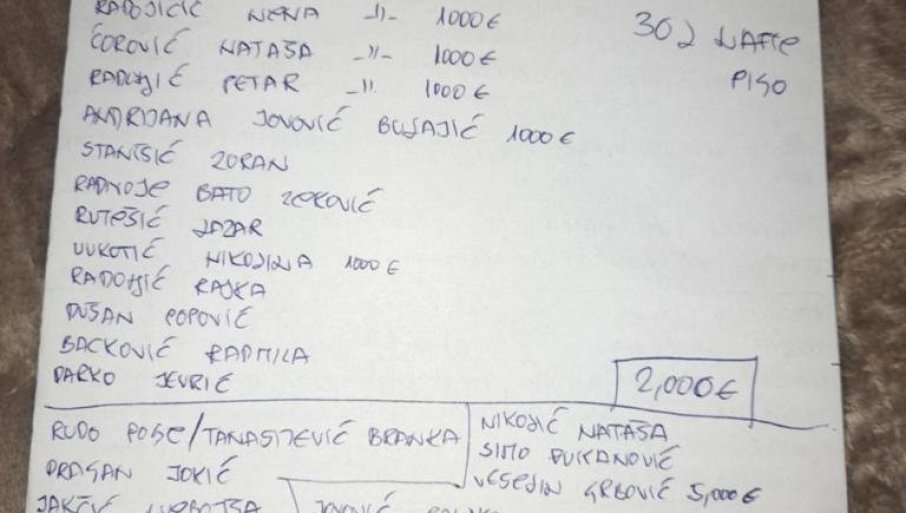 RADOJIČIĆ NENA -11- 1000€
ĆOROVIĆ NATAŠA -11- 1000€
RADONJIĆ PETAR -11- 1000€
30 J NAFTE
PISO
ANDRIJANA JOVOVIĆ BUJAJIĆ 1000€
STANIŠIĆ ZORAN
RADIVOJE BATO ZEKOVIĆ
RUTEŠIĆ LAZAR
VUKOTIĆ NIKOLINA 1000€
RADONJIĆ RAJKA
DUŠAN POPOVIĆ
BACKOVIĆ RADMILA
DARKO JEVRIĆ
2,000€
RUDO POBE/TANASIJEVIĆ BRANKA
DRAGAN JOKIĆ
NIKOLIĆ NATAŠA
SIMO ĐUKANOVIĆ
VESELIN GRBOVIĆ 5,000€
JOVOVIĆ